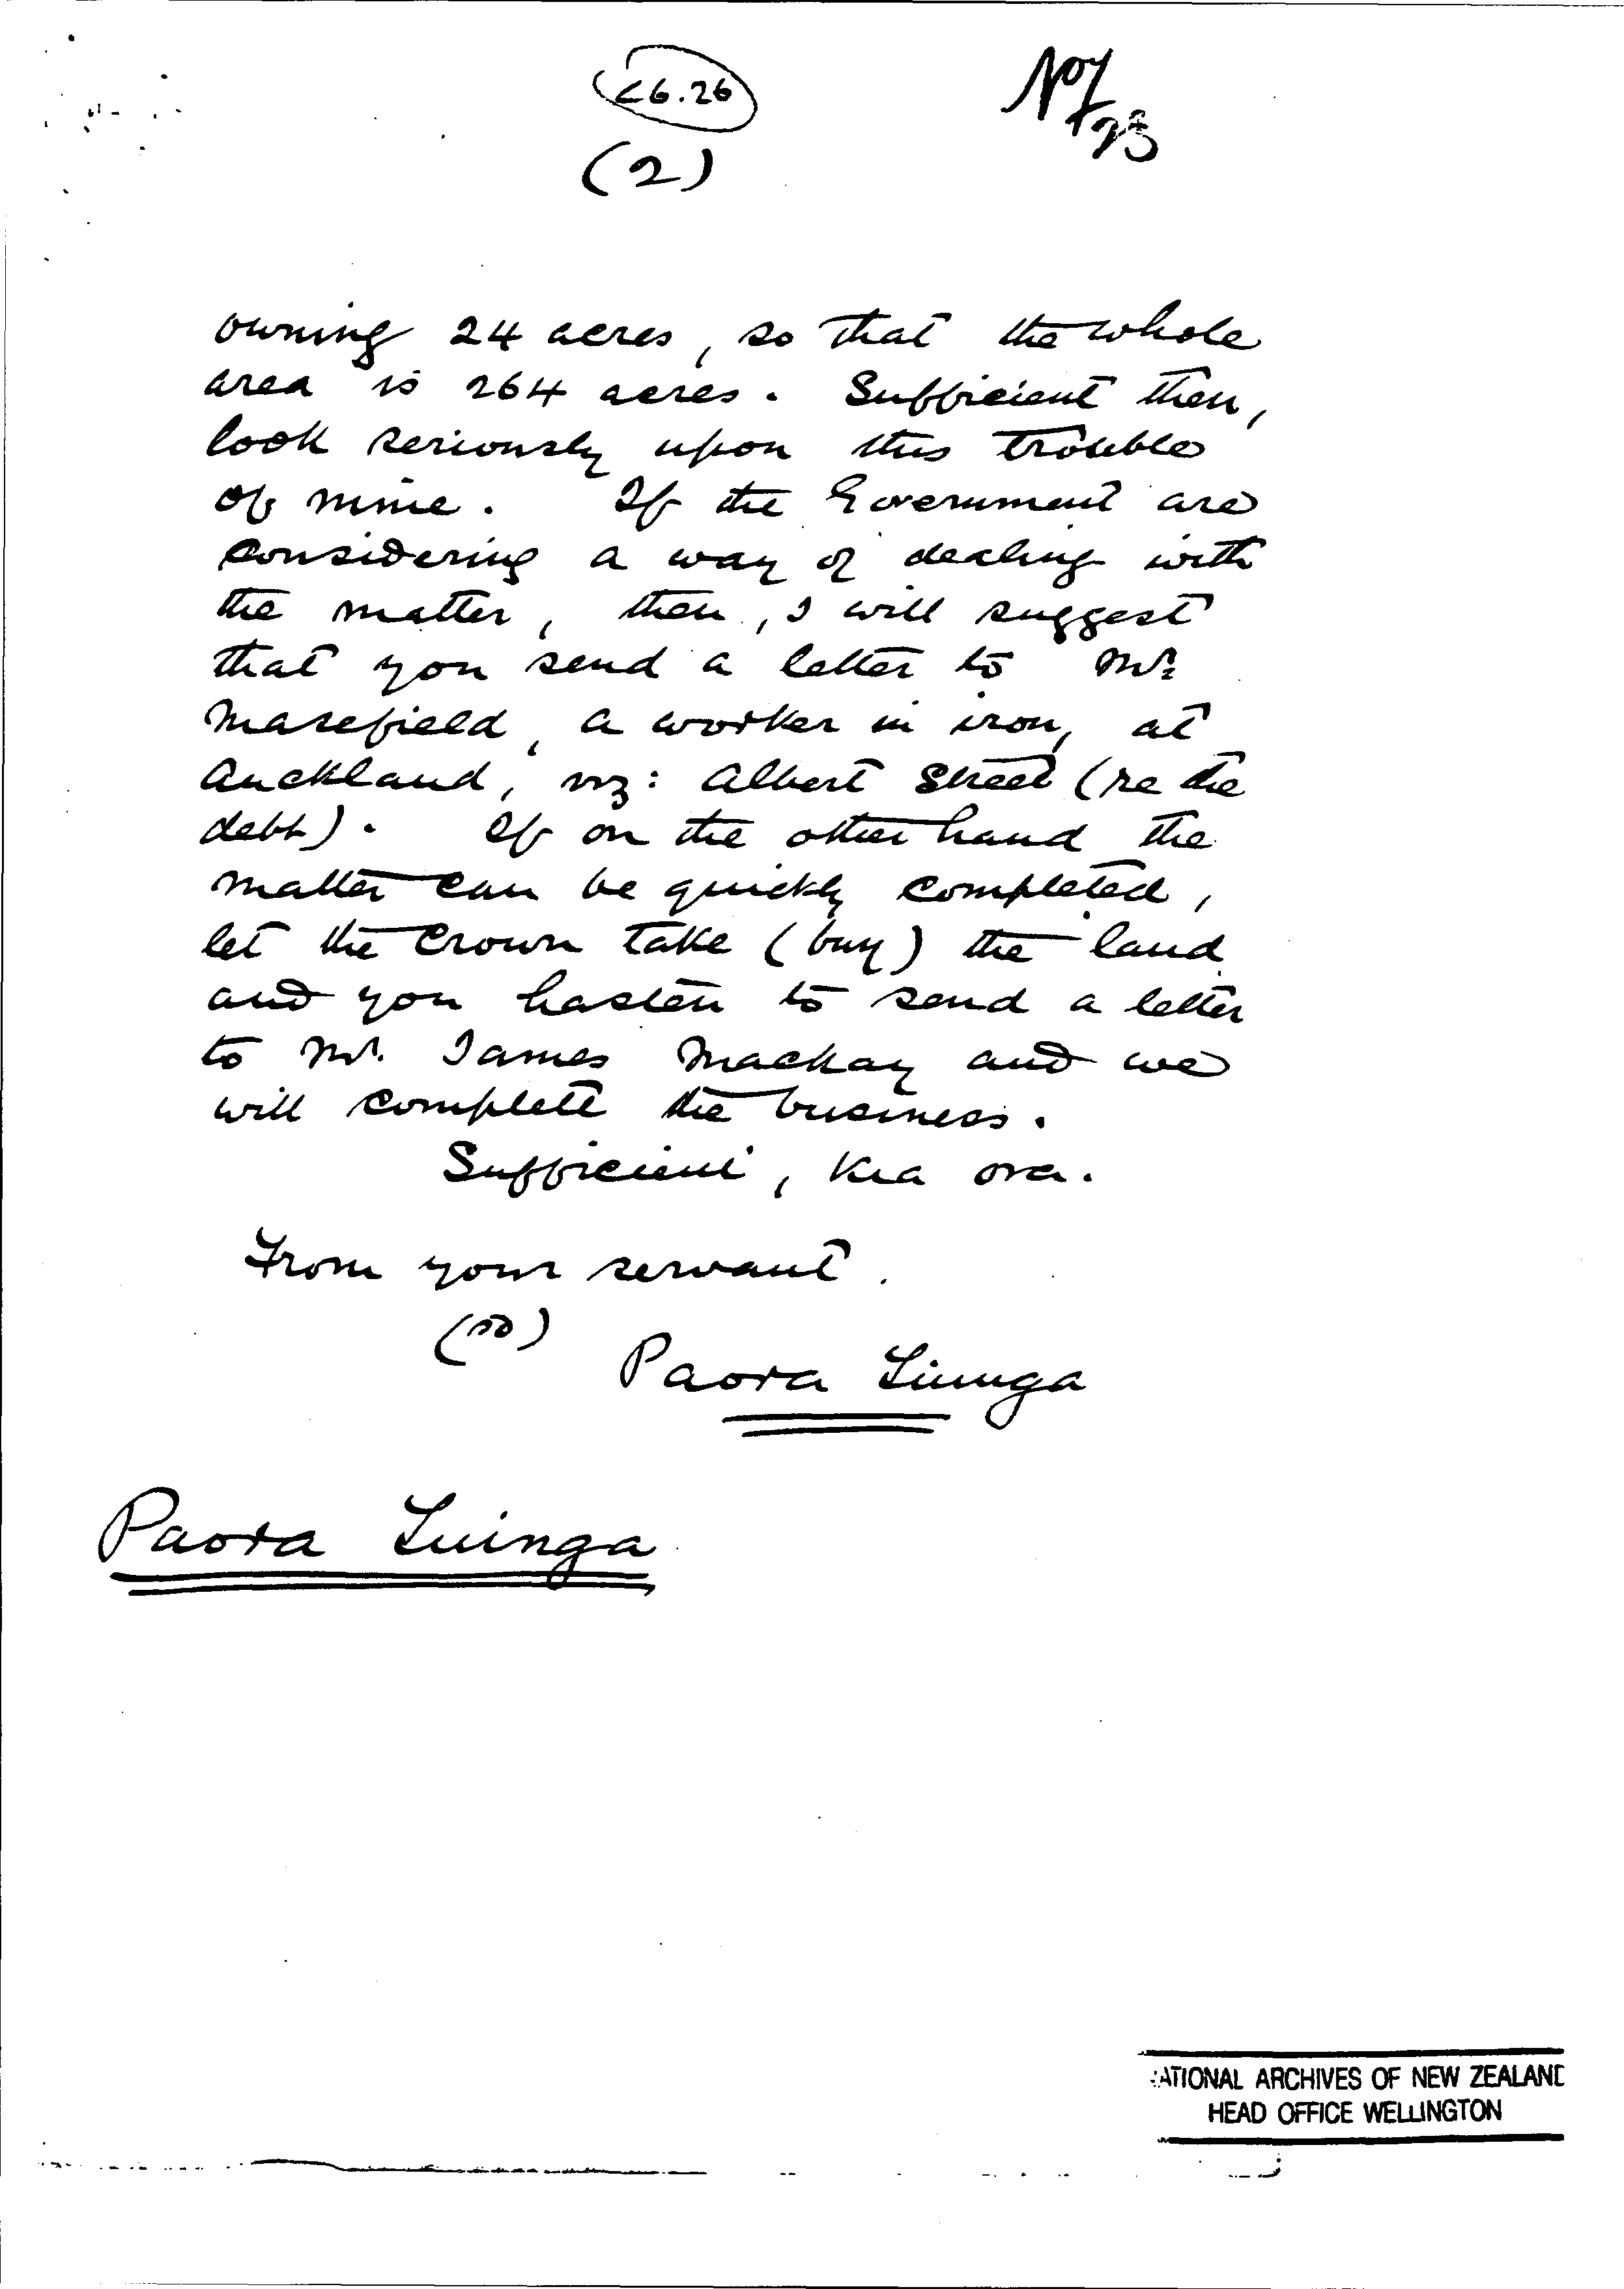 C6.26
(2)
owning 24 acres, so that the whole
area is 264 acres. Sufficient then,
look seriously upon this trouble
of mine. If the Government are
considering a way of dealing with
the matter, then, I will suggest
that you send a letter to Mr.
Masefield, a worker in iron, at
Auckland, viz: Albert Street (re the
debt). If on the other hand the
matter can be quickly completed,
let the Crown take (buy) the land
and you hasten to send a letter
to Mr. James Mackay and we
will complete the business.
Sufficient, Kia ora.
From your servant.
(sd)
Paora
Paora
ATIONAL ARCHIVES OF NEW ZEALAND
HEAD OFFICE WELLINGTON